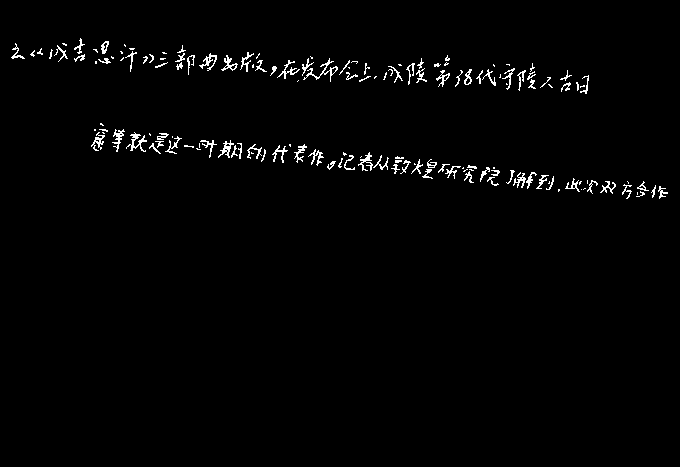 之《成吉思汗》三部曲出版，在发布会上，成陵第38代守陵人古日
窟等就是这一时期的代表作。记者从敦煌研究院了解到，此次双方合作